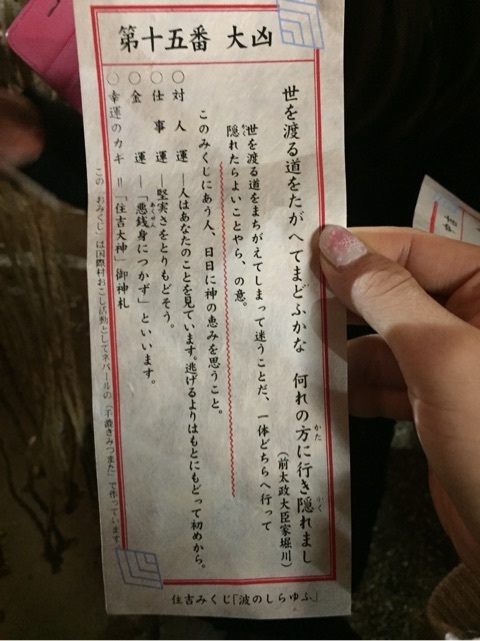 第十五番 大凶
世を渡る道をたがへてまどふかな 何れの方に行き隠れまし
かた
かく
(前太政大臣家堀川)
世を渡る道をまちがえてしまって迷うことだ、一体どちらへ行って
隠れたらよいことやら、の意。
かく
このみくじにあう人、日日に神の恵みを思うこと。
○対人運―人はあなたのことを見ています。逃げるよりはもとにもどって初めから。
○仕事運―堅実さをとりもどそう。
○金運―「悪銭身につかず」といいます。
あくせん
○幸運のカギ=「住吉大神」御神札
この「おみくじ」は国際村おこし活動としてネパールの「手漉きみつまた」で作っています。
住吉みくじ「波のしらゆふ」